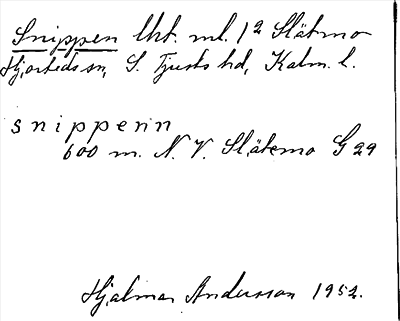 Snippen lht. ml. 1² Slätmo
Hjorteds sn, S. Tjusts hd, Kalm. l.
snippenn
600 m. N. V. Slätemo G 29
Hjalmar Andersson 1952.